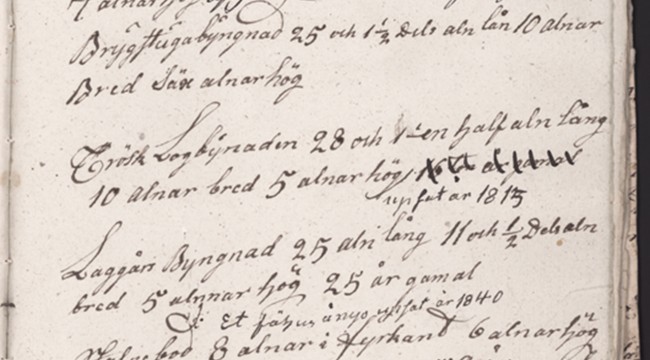 alnar hög
Brygstugabyngnad 25 och 1½ dels aln lån 10 alnar
Bred Säx alnar hög
Trösk Logbynaden 28 och 1 en half aln lång
10 alnar bred 5 alnar hög
upsat år 1815
Laggårs Byngnad 25 aln lång 11 och ½ Dels aln
bred 5 alnnar hög 25 år gamal
Et fähus ånyo upsat år 1840
bod 8 alnar i fyrkant 6 alnar hög